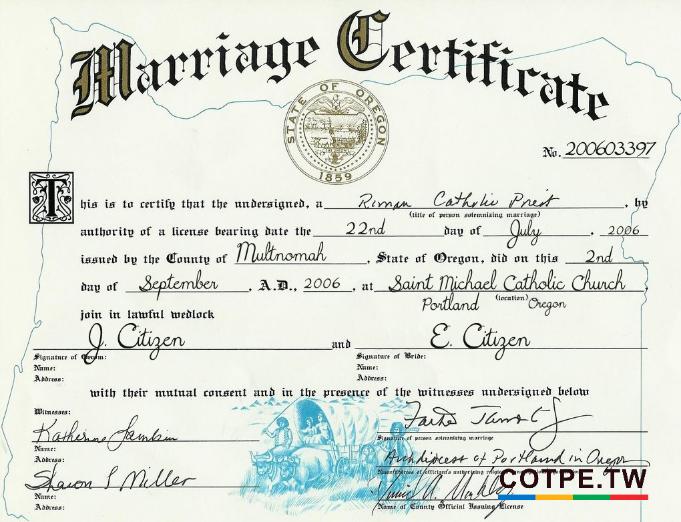 Marriage Certificate
STATE OF OREGON
1859
No. 200603397
This is to certify that the undersigned, a Roman Catholic Priest, by
(title of person solemnizing marriage)
authority of a license bearing date the 22nd day of July, 2006
issued by the County of Multnomah, State of Oregon, did on this 2nd
day of September, A.D., 2006, at Saint Michael Catholic Church
(location)
Portland Oregon
join in lawful wedlock
J. Citizen and E. Citizen
Signature of Groom: Signature of Bride:
Name: Name:
Address: Address:
with their mutual consent and in the presence of the witnesses undersigned below
Witnesses:
Katherine
Signature of person solemnizing marriage
Name:
Address:
Archdiocese of Portland in Oregon
Sharon L Miller
Name:
Address:
Name of County Official Issuing License
COTPE.TW